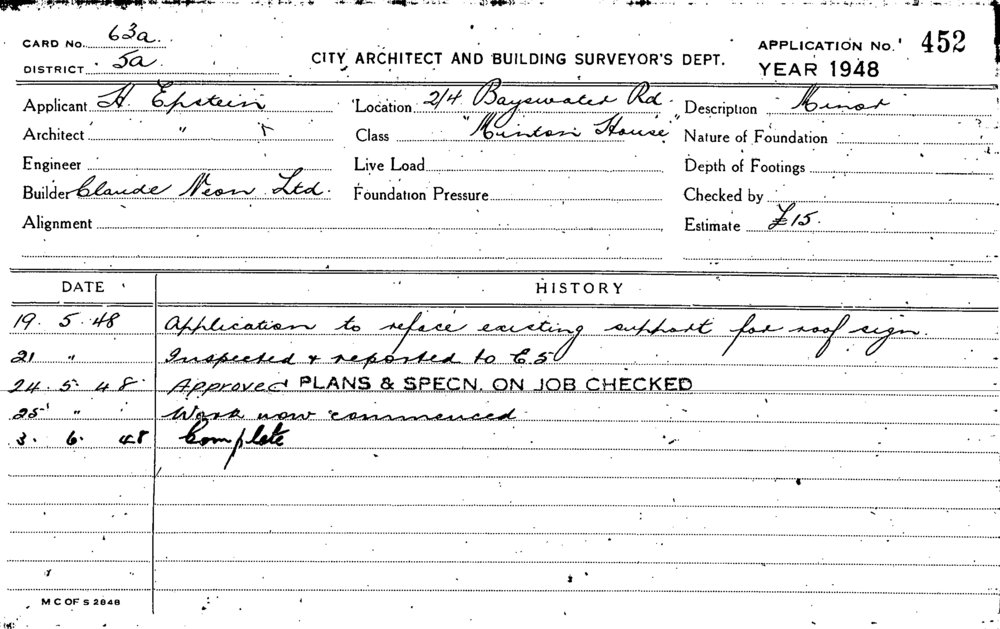 CARD No. 63a.
DISTRICT 5a.
CITY ARCHITECT AND BUILDING SURVEYOR'S DEPT.
APPLICATION No. 452
YEAR 1948
Applicant H. Epstein
Location 2/4 Bayswater Rd.
Description Minor
Architect "
Class "Minton House"
Nature of Foundation
Engineer
Live Load
Depth of Footings
Builder Claude Neon Ltd.
Foundation Pressure
Checked by
Alignment
Estimate £15.
DATE HISTORY
19. 5. 48 Application to reface existing support for roof sign.
21 " Inspected & reported to E.S
24. 5. 48. Approved PLANS & SPECN. ON JOB CHECKED
25 " Work now commenced
3. 6. 48 Complete
M C OF S 2848